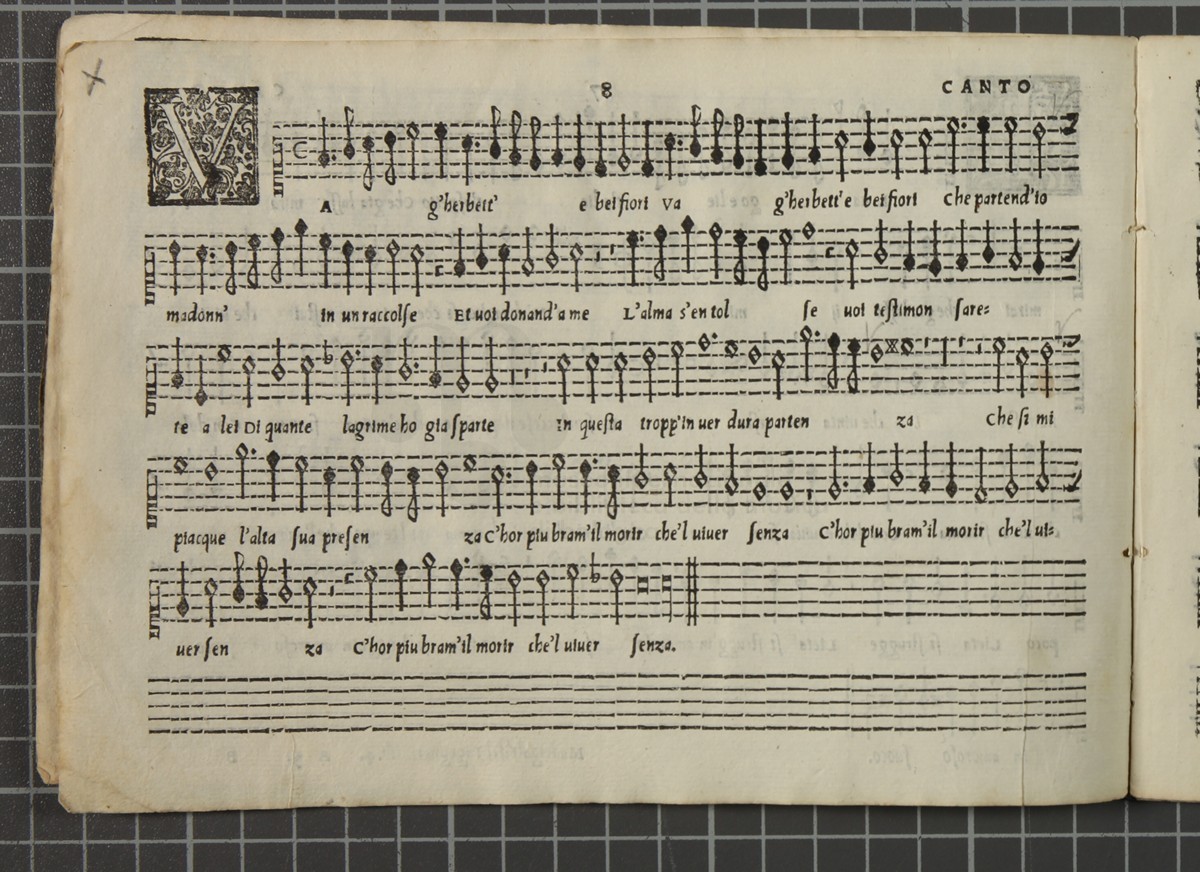 8 CANTO
V A g'herbett' e bei fiori Va g'herbett' e bei fiori Che partend'io
madonn' in un raccolse Et voi donand'a me L'alma s'en tol se voi teſtimon ſare=
te a lei Di quante lagrime ho gia ſparte In queſta tropp'in ver dura parten za Che ſi mi
piacque l'alta ſua preſen za C'hor piu bram'il morir che'l viuer ſenza C'hor piu bram'il morir che'l vi=
uer ſen za C'hor piu bram'il morir che'l viuer ſenza.